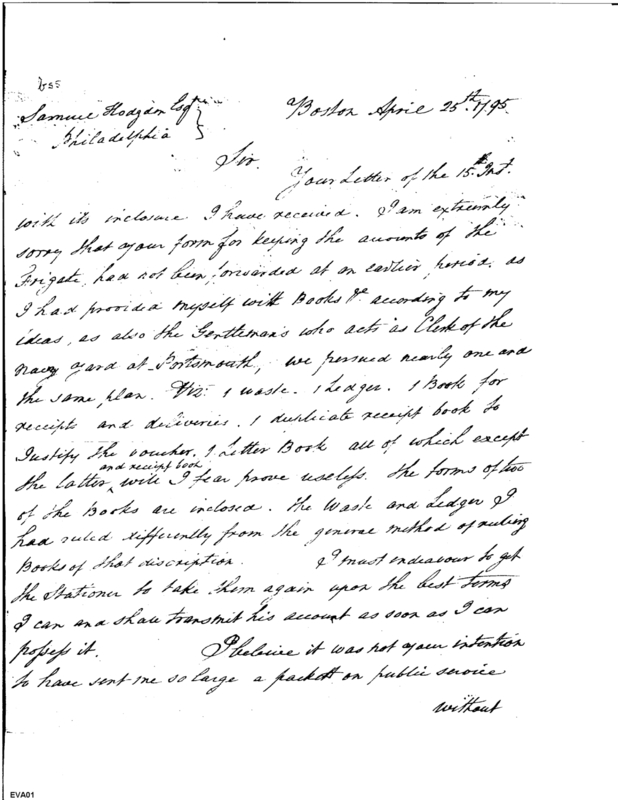 Samuel Hodgdon Esqr
Boston April 25th 1795.
Philadelphia
Sir.
Your Letter of the 15th Inst.
with its inclosure I have received. I am extremly
sorry that your form for keeping the accounts of the
Frigate, had not been forwarded at an earlier period. as
I had provided myself with Books &c according to my
ideas, as also the Gentleman's who acts as Clerk of the
navy yard at Portsmouth, we persued nearly one and
the same plan. Viz. 1 waste. 1 Ledger. 1 Book for
receipts and deliveries. 1 duplicate receipt book to
Justify the voucher. 1 Letter Book all of which except
and receipt book
the latter will I fear prove useless. the forms of two
of the Books are inclosed. the Waste and Ledger I
had ruled differently from the general method of ruling
Books of that discription. I must endeavour to get
the Stationer to take them again upon the best terms
I can and shall transmit his account as soon as I can
possess it. I beleive it was not your intention
to have sent me so large a packett on public service
without
EVA01